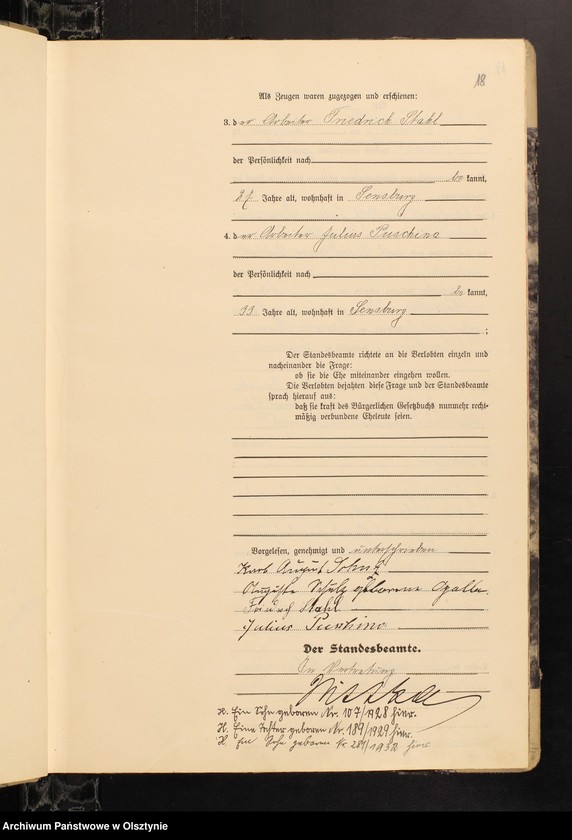 18
Als Zeugen waren zugezogen und erschienen:
3. der Arbeiter Friedrich Stahl
der Persönlichkeit nach
be kannt,
27 Jahre alt, wohnhaft in Sensburg
4. der Arbeiter Julius Puschina
der Persönlichkeit nach
be kannt,
33 Jahre alt, wohnhaft in Sensburg
;
Der Standesbeamte richtete an die Verlobten einzeln und
nacheinander die Frage:
ob sie die Ehe miteinander eingehen wollen.
Die Verlobten bejahten diese Frage und der Standesbeamte
sprach hierauf aus:
daß sie kraft des Bürgerlichen Gesetzbuchs nunmehr recht-
mäßig verbundene Eheleute seien.
Vorgelesen, genehmigt und unterschrieben
Karl August Schulz
Auguste Schulz geborene Opalla
Friedrich Stahl
Julius Puschina
Der Standesbeamte.
In Vertretung
H. Ein Sohn geboren Nr. 107/1928 hier.
H. Eine Tochter geboren Nr. 189/1929 hier.
H. Ein Sohn geboren Nr. 281/1932 hier
Archiwum Państwowe w Olsztynie